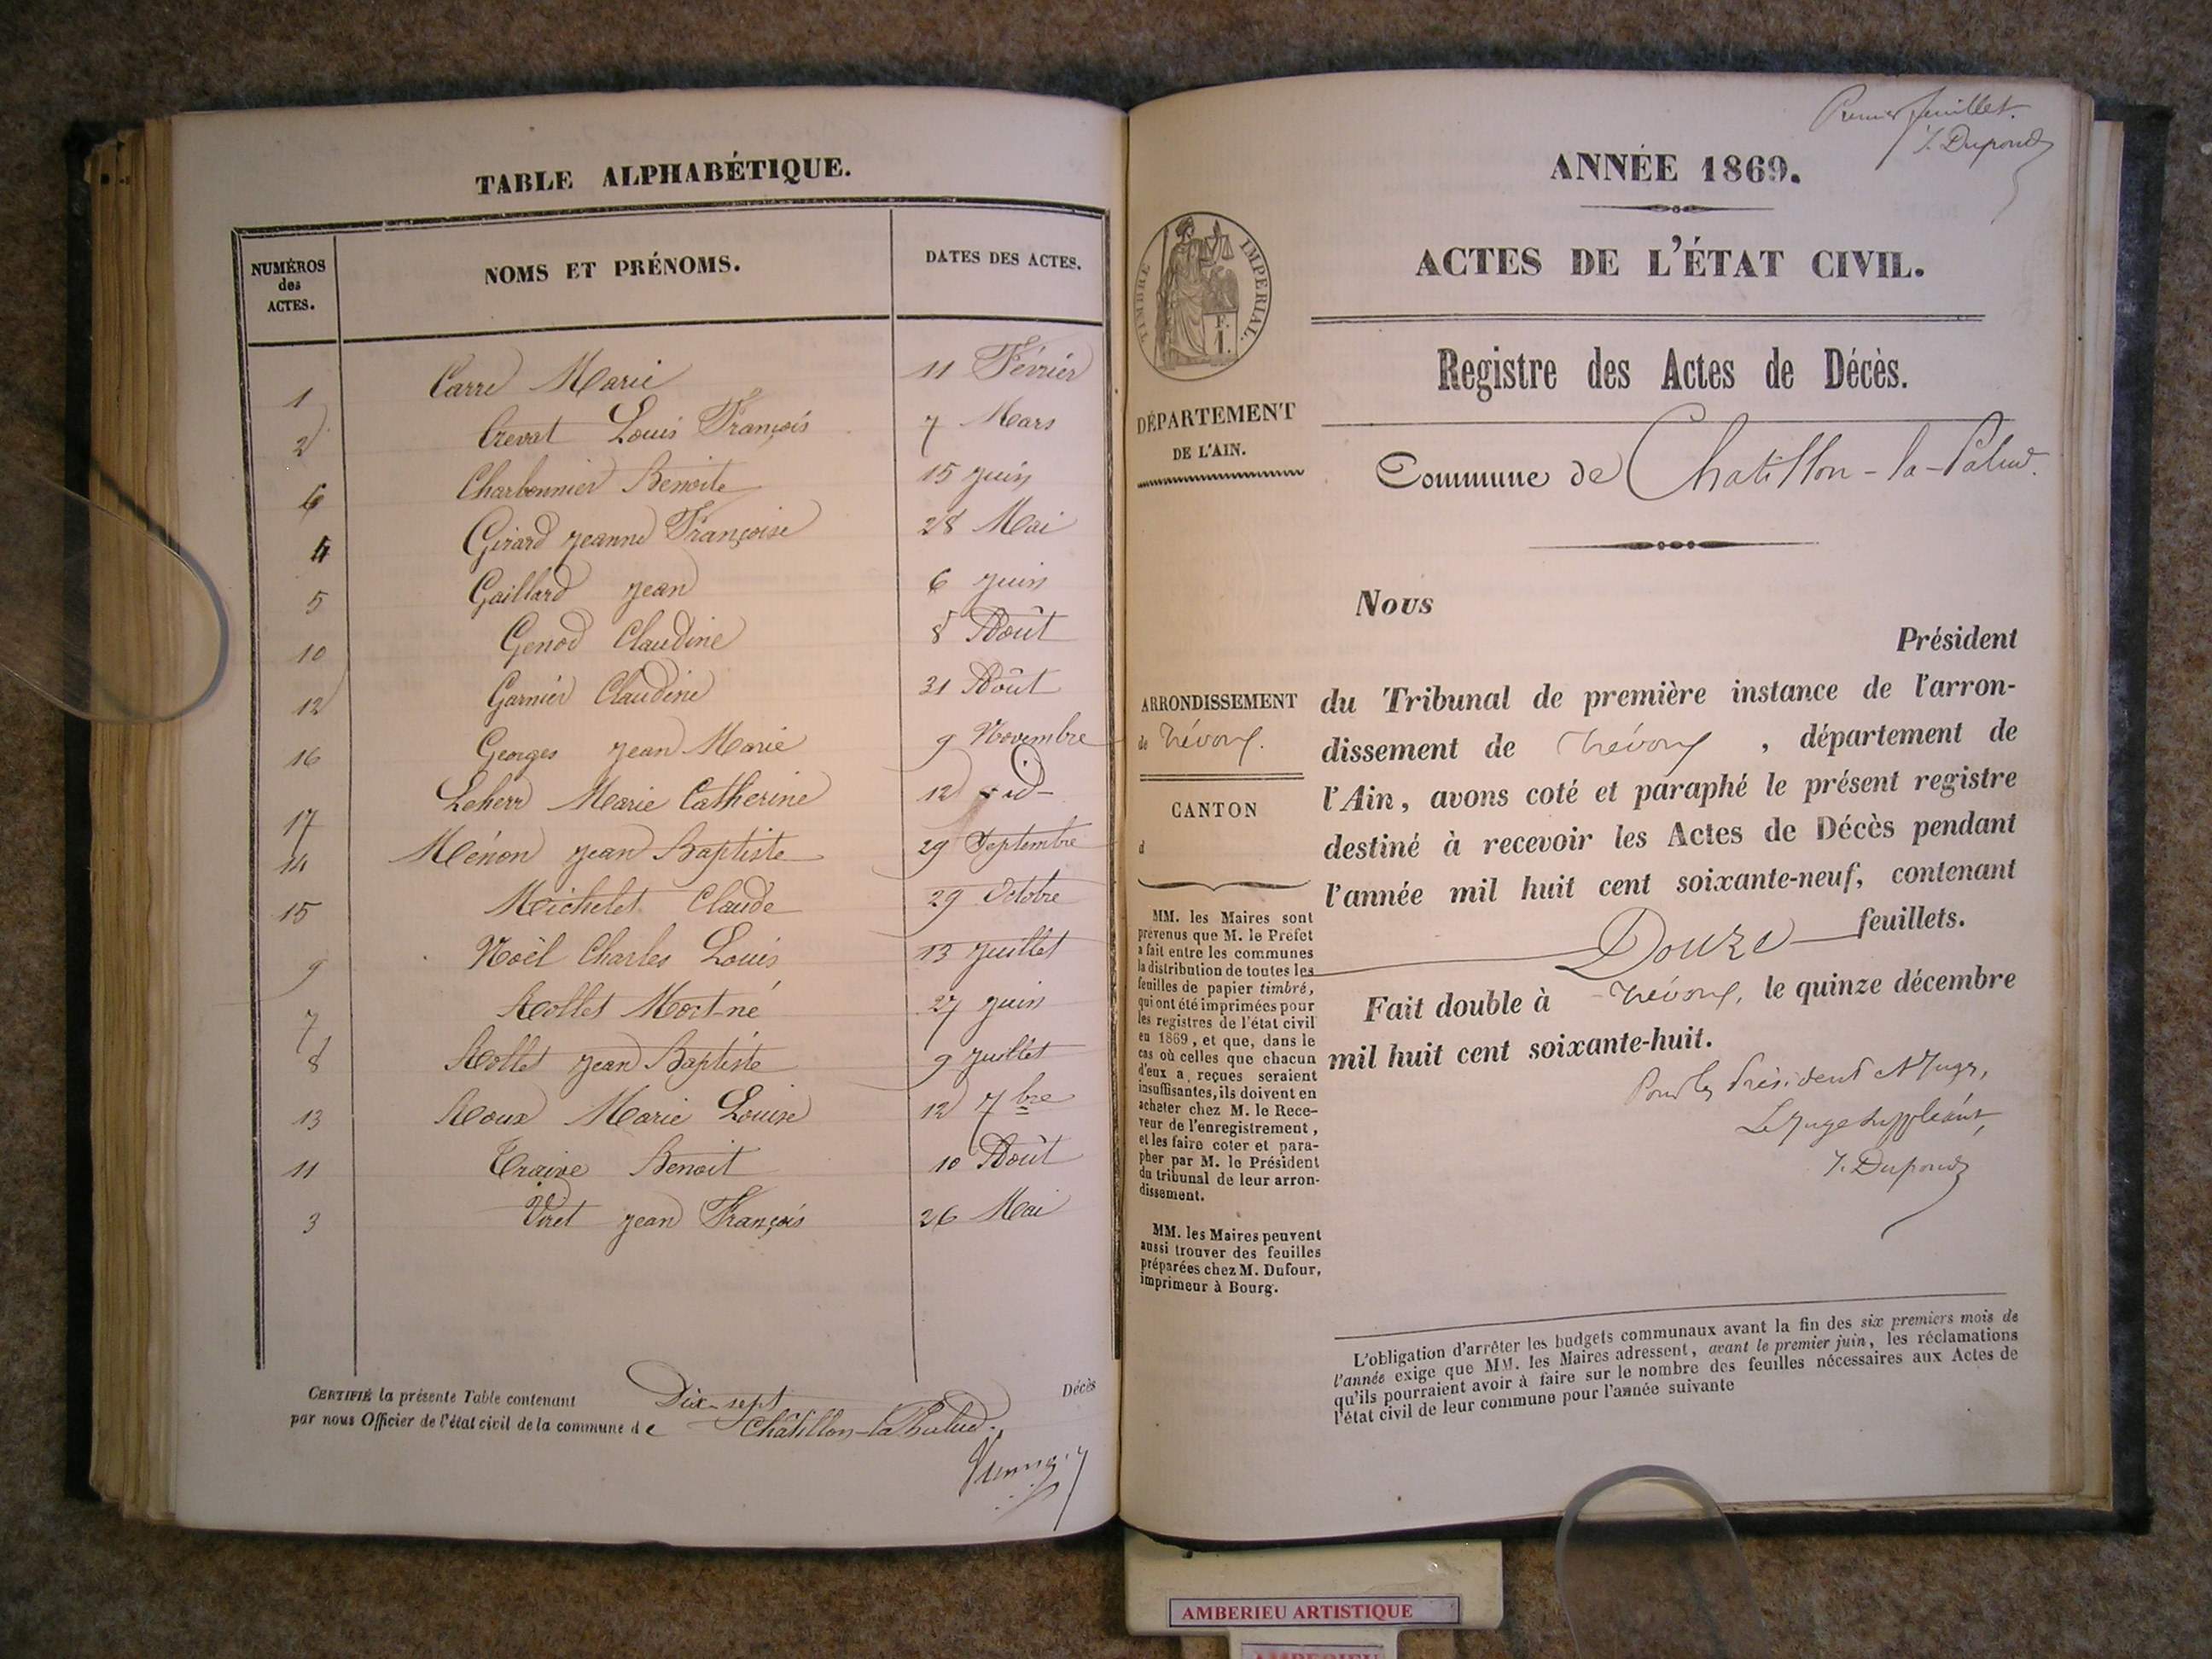 TABLE ALPHABÉTIQUE.
NUMÉROS des ACTES. NOMS ET PRÉNOMS. DATES DES ACTES.
1 Carré Marie 11 Février
2 Crevat Louis François 7 Mars
6 Charbonnier Benoite 15 Juin
4 Girard Jeanne Françoise 28 Mai
5 Gaillard Jean 6 Juin
10 Genod Claudine 8 Août
12 Garnier Claudine 31 Août
16 Georges Jean Marie 9 Novembre
17 Leherr Marie Catherine 12 -id-
14 Ménon Jean Baptiste 29 Septembre
15 Michelet Claude 29 Octobre
9 Noël Charles Louis 13 Juillet
7 Rollet Mort-né 27 Juin
8 Rollet Jean Baptiste 9 Juillet
13 Roux Marie Louise 12 7bre
11 Traive Benoit 10 Août
3 Viret Jean François 26 Mai
CERTIFIÉ la présente Table contenant Dix-sept Décès
par nous Officier de l'état civil de la commune de Châtillon-la-Palud.
Premier feuillet.
J. Dupond
ANNÉE 1869.
ACTES DE L'ÉTAT CIVIL.
TIMBRE IMPÉRIAL.
F.
1.
Registre des Actes de Décès.
DÉPARTEMENT
DE L'AIN.
Commune de Chatillon-la-Palud.
Nous
Président
du Tribunal de première instance de l'arron-
dissement de Trévoux, département de
l'Ain, avons coté et paraphé le présent registre
destiné à recevoir les Actes de Décès pendant
l'année mil huit cent soixante-neuf, contenant
Douze feuillets.
Fait double à Trévoux, le quinze décembre
mil huit cent soixante-huit.
Pour les Président et Juges,
Le Juge suppléant,
J. Dupond
ARRONDISSEMENT
de Trévoux.
CANTON
d
MM. les Maires sont
prévenus que M. le Préfet
a fait entre les communes
la distribution de toutes les
feuilles de papier timbré,
qui ont été imprimées pour
les registres de l'état civil
en 1869, et que, dans le
cas où celles que chacun
d'eux a reçues seraient
insuffisantes, ils doivent en
acheter chez M. le Rece-
veur de l'enregistrement,
et les faire coter et para-
pher par M. le Président
du tribunal de leur arron-
dissement.
MM. les Maires peuvent
aussi trouver des feuilles
préparées chez M. Dufour,
imprimeur à Bourg.
L'obligation d'arrêter les budgets communaux avant la fin des six premiers mois de
l'année exige que MM. les Maires adressent, avant le premier juin, les réclamations
qu'ils pourraient avoir à faire sur le nombre des feuilles nécessaires aux Actes de
l'état civil de leur commune pour l'année suivante
AMBERIEU ARTISTIQUE
AMBERIEU